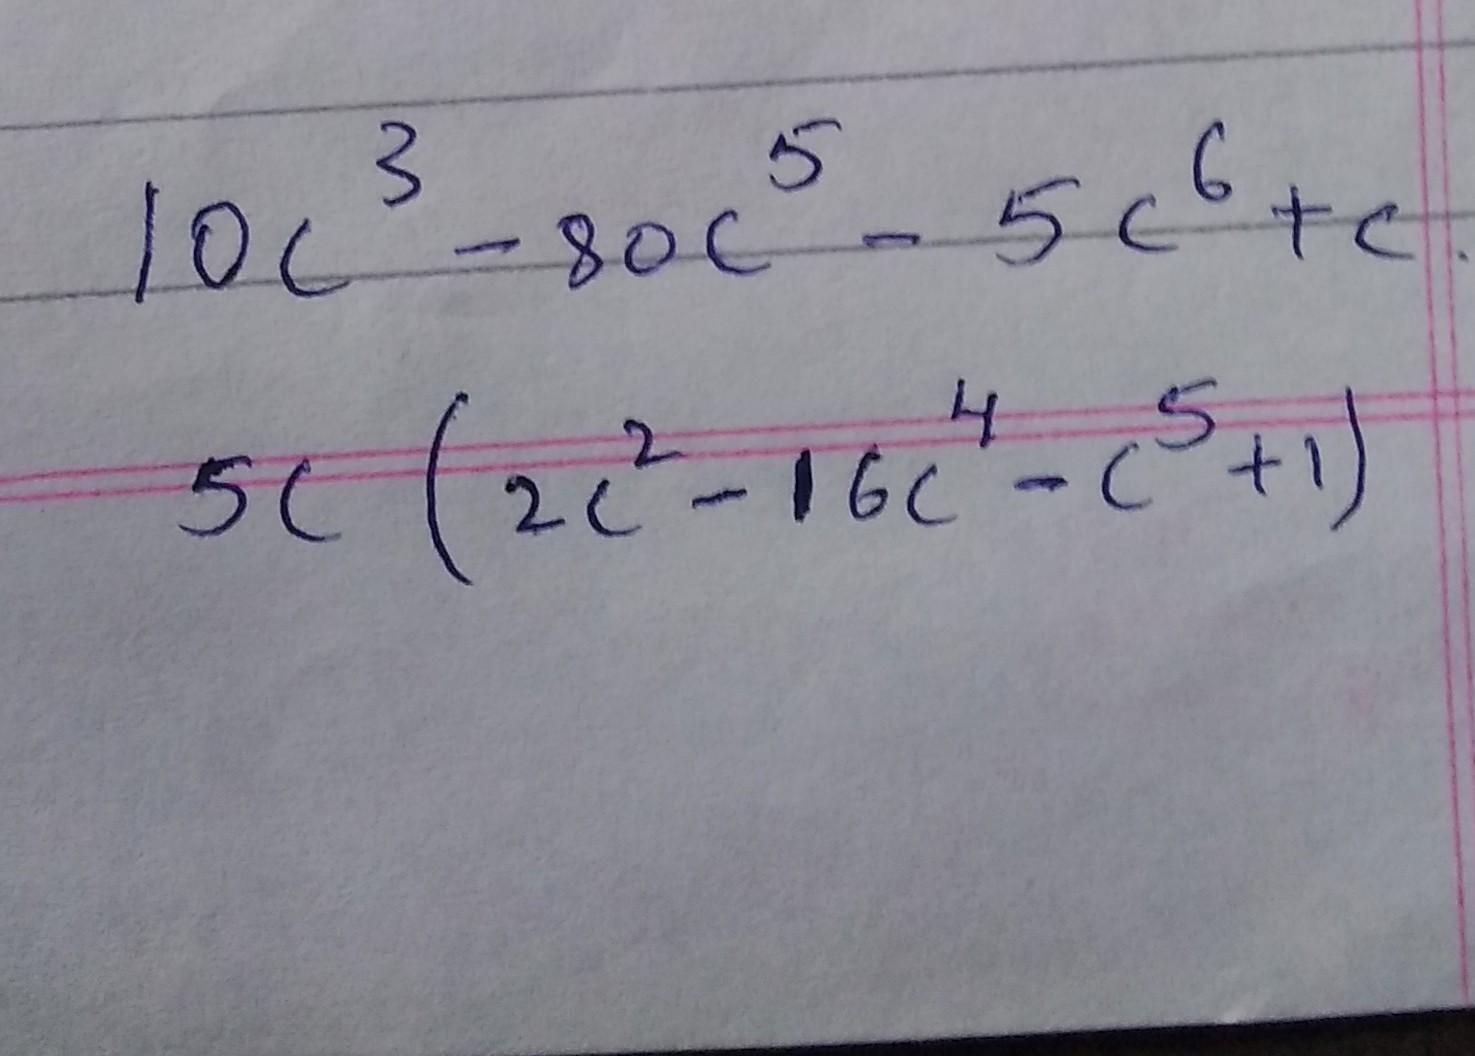 10c³ - 80c⁵ - 5c⁶ + c.
5c (2c² - 16c⁴ - c⁵ + 1)